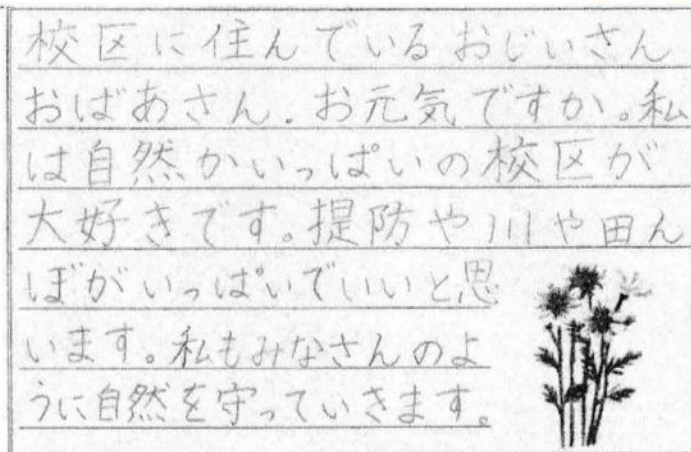 校区に住んでいるおじいさん
おばあさん。お元気ですか。私
は自然がいっぱいの校区が
大好きです。提防や川や田ん
ぼがいっぱいでいいと思
います。私もみなさんのよ
うに自然を守っていきます。